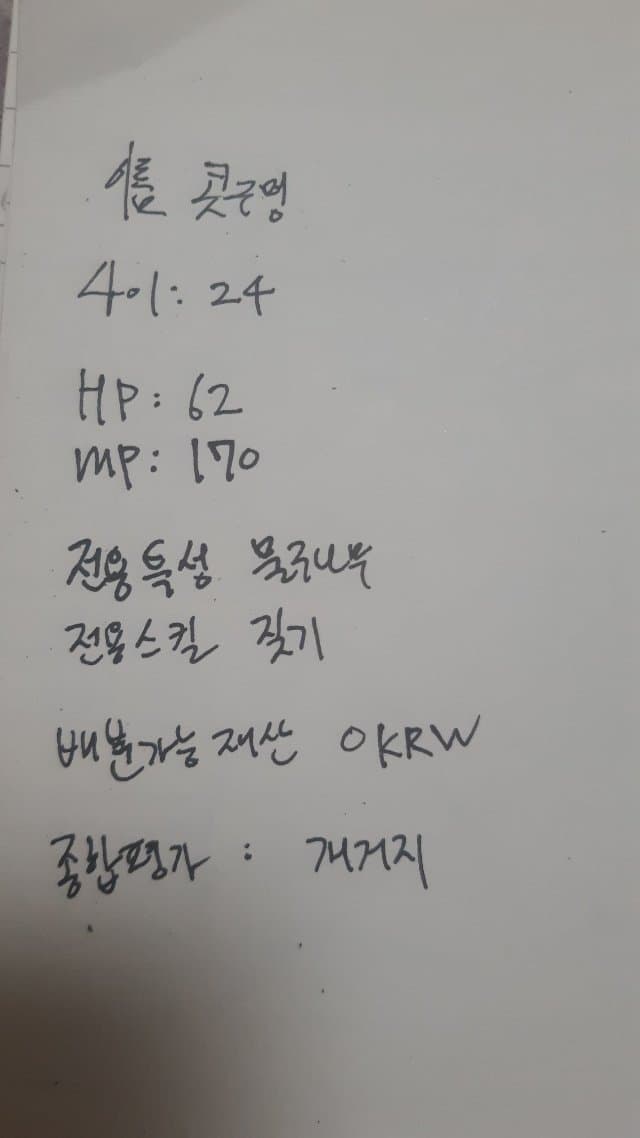 이름 콧구멍
4이: 24
HP: 62
MP: 170
전용특성 물구나무
전용스킬 짖기
배분가능재산 0KRW
종합평가 : 개거지